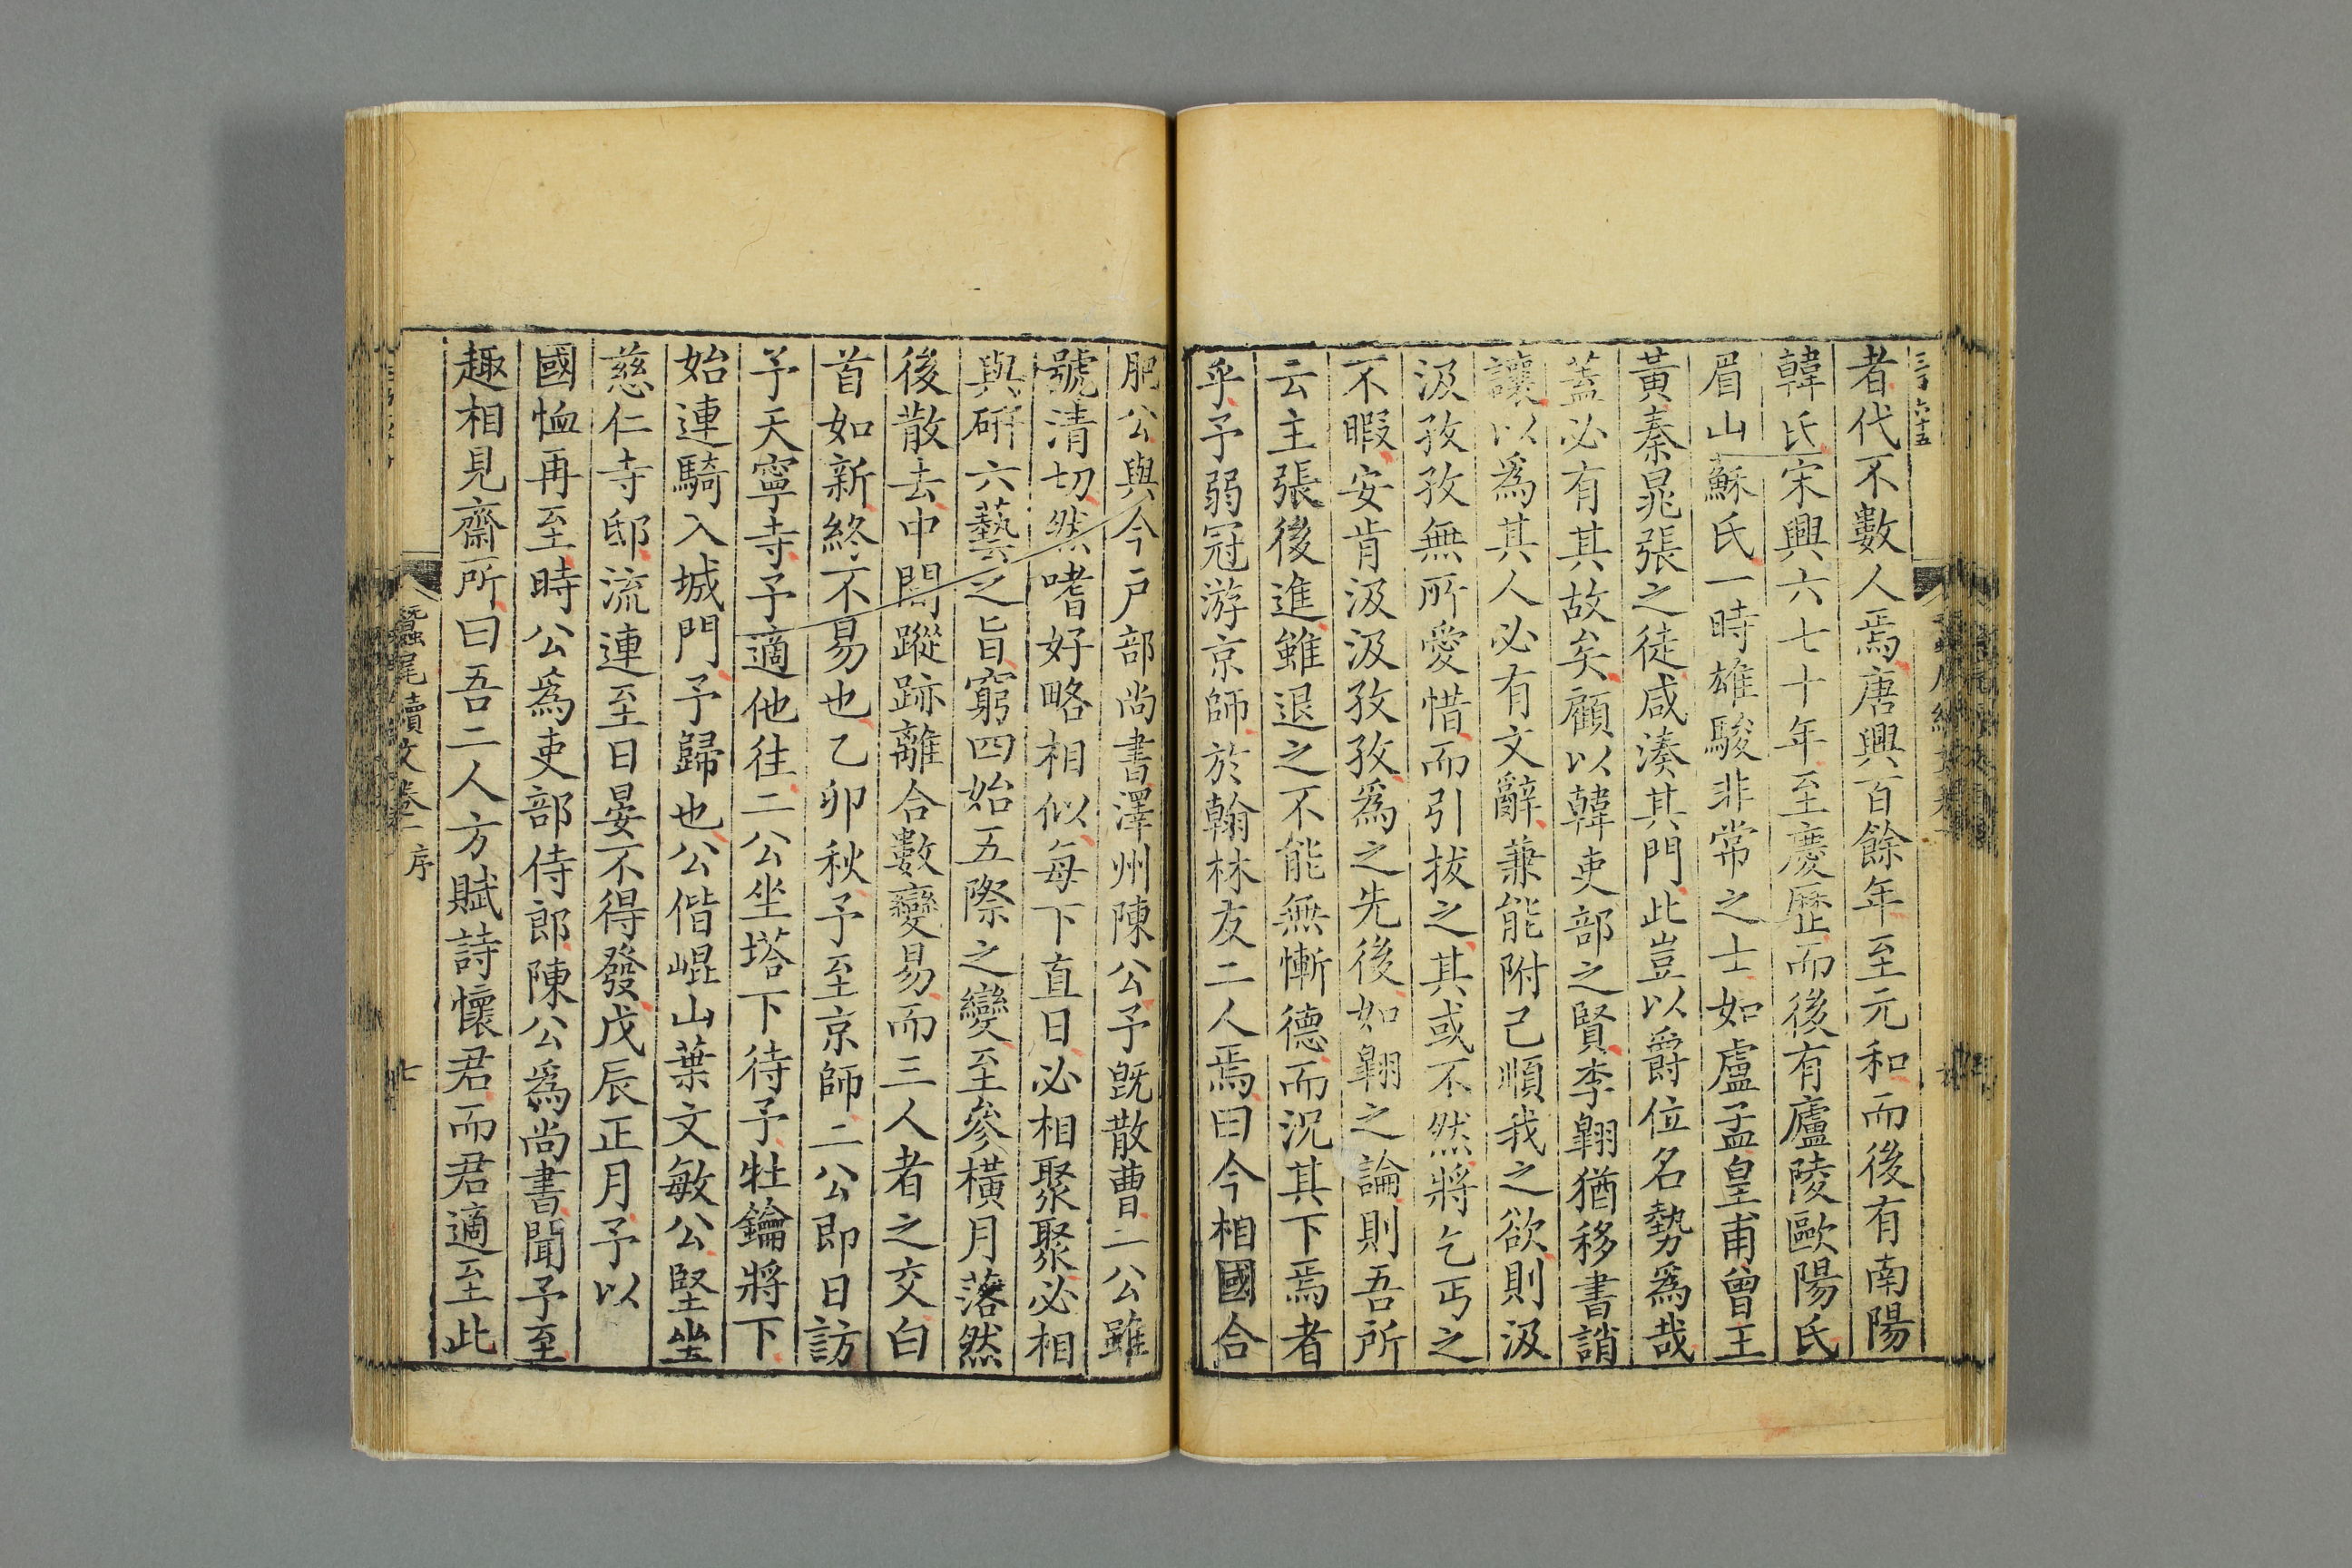 者代不數人焉唐興百餘年至元和而後有南陽
韓氏宋興六七十年至慶歷而後有廬陵歐陽氏
眉山蘇氏一時雄駿非常之士如盧孟皇甫曾王
黃秦晁張之徒咸湊其門此豈以爵位名勢爲哉
蓋必有其故矣顧以韓吏部之賢李翺猶移書誚
讓以爲其人必有文辭兼能附己順我之欲則汲
汲孜孜無所愛惜而引拔之其或不然將乞丐之
不暇安肯汲汲孜孜爲之先後如翺之論則吾所
云主張後進雖退之不能無慚德而況其下焉者
乎予弱冠游京師於翰林友二人焉曰今相國合
肥公與今戶部尚書澤州陳公予旣散曹二公雖
號清切然嗜好略相似每下直日必相聚聚必相
與硏六藝之旨窮四始五際之變至參橫月落然
後散去中閒蹤跡離合數變易而三人者之交白
首如新終不易也乙卯秋予至京師二公卽日訪
予天寧寺予適他往二公坐塔下待予牡鑰將下
始連騎入城門予歸也公偕崐山葉文敏公堅坐
慈仁寺邸流連至日晏不得發戊辰正月予以
國恤再至時公爲吏部侍郎陳公爲尚書聞予至
趣相見齋所曰吾二人方賦詩懷君而君適至此
蠶尾續文卷一 序
七